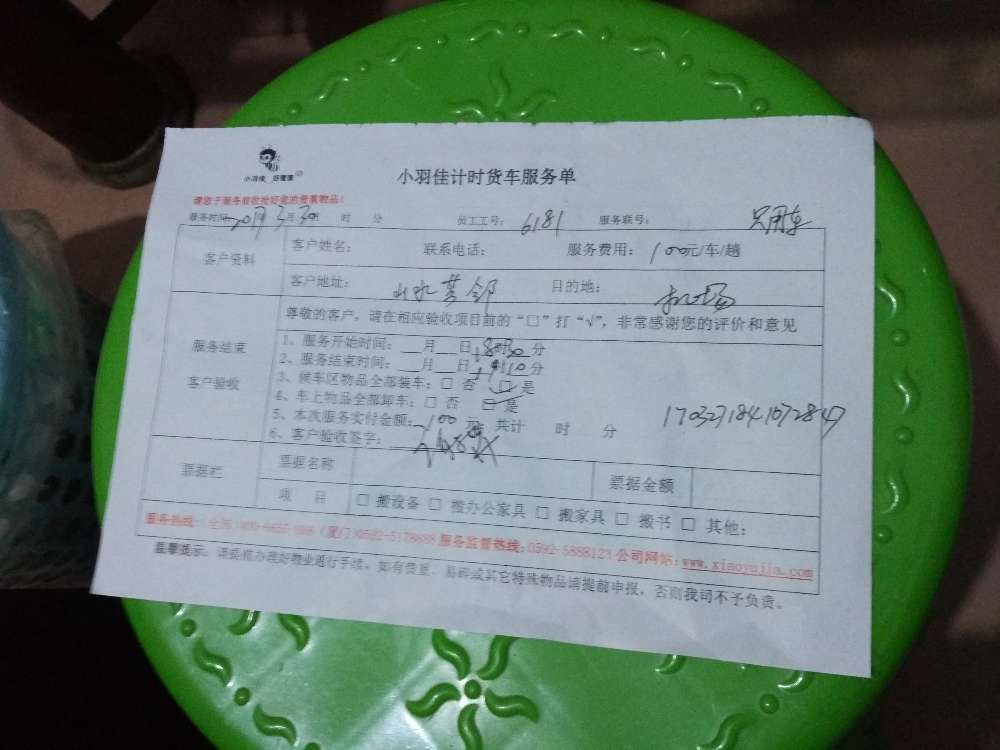 小羽佳 好管家
小羽佳计时货车服务单
请您于服务前收拾好您的贵重物品!
服务时间: 2017年3月30日 时 分 员工工号: 6181 服务联号: 只用车
客户资料
客户姓名: 联系电话: 服务费用: 100元/车/趟
客户地址: 山水芳邻 目的地: 机场
服务结束
客户验收
尊敬的客户，请在相应验收项目前的“□”打“√”，非常感谢您的评价和意见
1、服务开始时间: __月__日 8时30分
2、服务结束时间: __月__日 9时10分
3、候车区物品全部装车: □ 否 □ 是
4、车上物品全部卸车: □ 否 □ 是
5、本次服务实付金额: 100元 共计 时 分
1703271841072847
6、客户验收签字:
票据栏
票据名称 票据金额
项 目 □ 搬设备 □ 搬办公家具 □ 搬家具 □ 搬书 □ 其他:
服务热线: (厦门)0592-5178888 服务监督热线: 0592-5888123 公司网站: www.xiaoyujia.com
温馨提示: 请提前办理好物业通行手续。如有贵重、易碎或其它特殊物品请提前申报，否则我司不予负责。